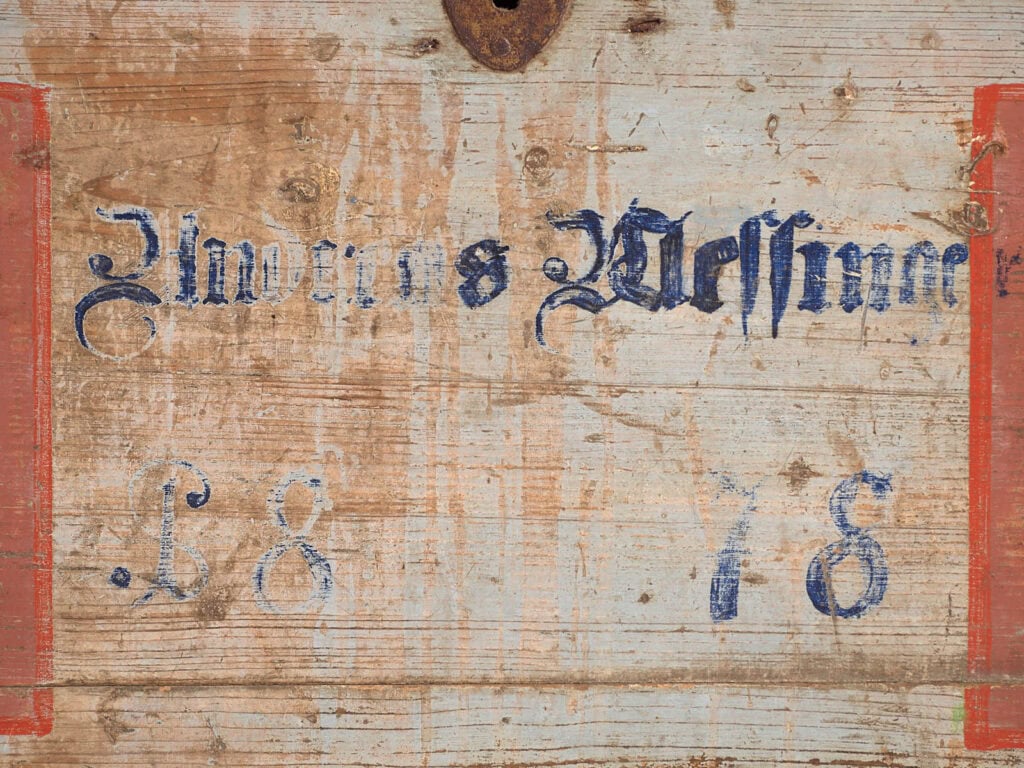 Andereas Messinger
18 78